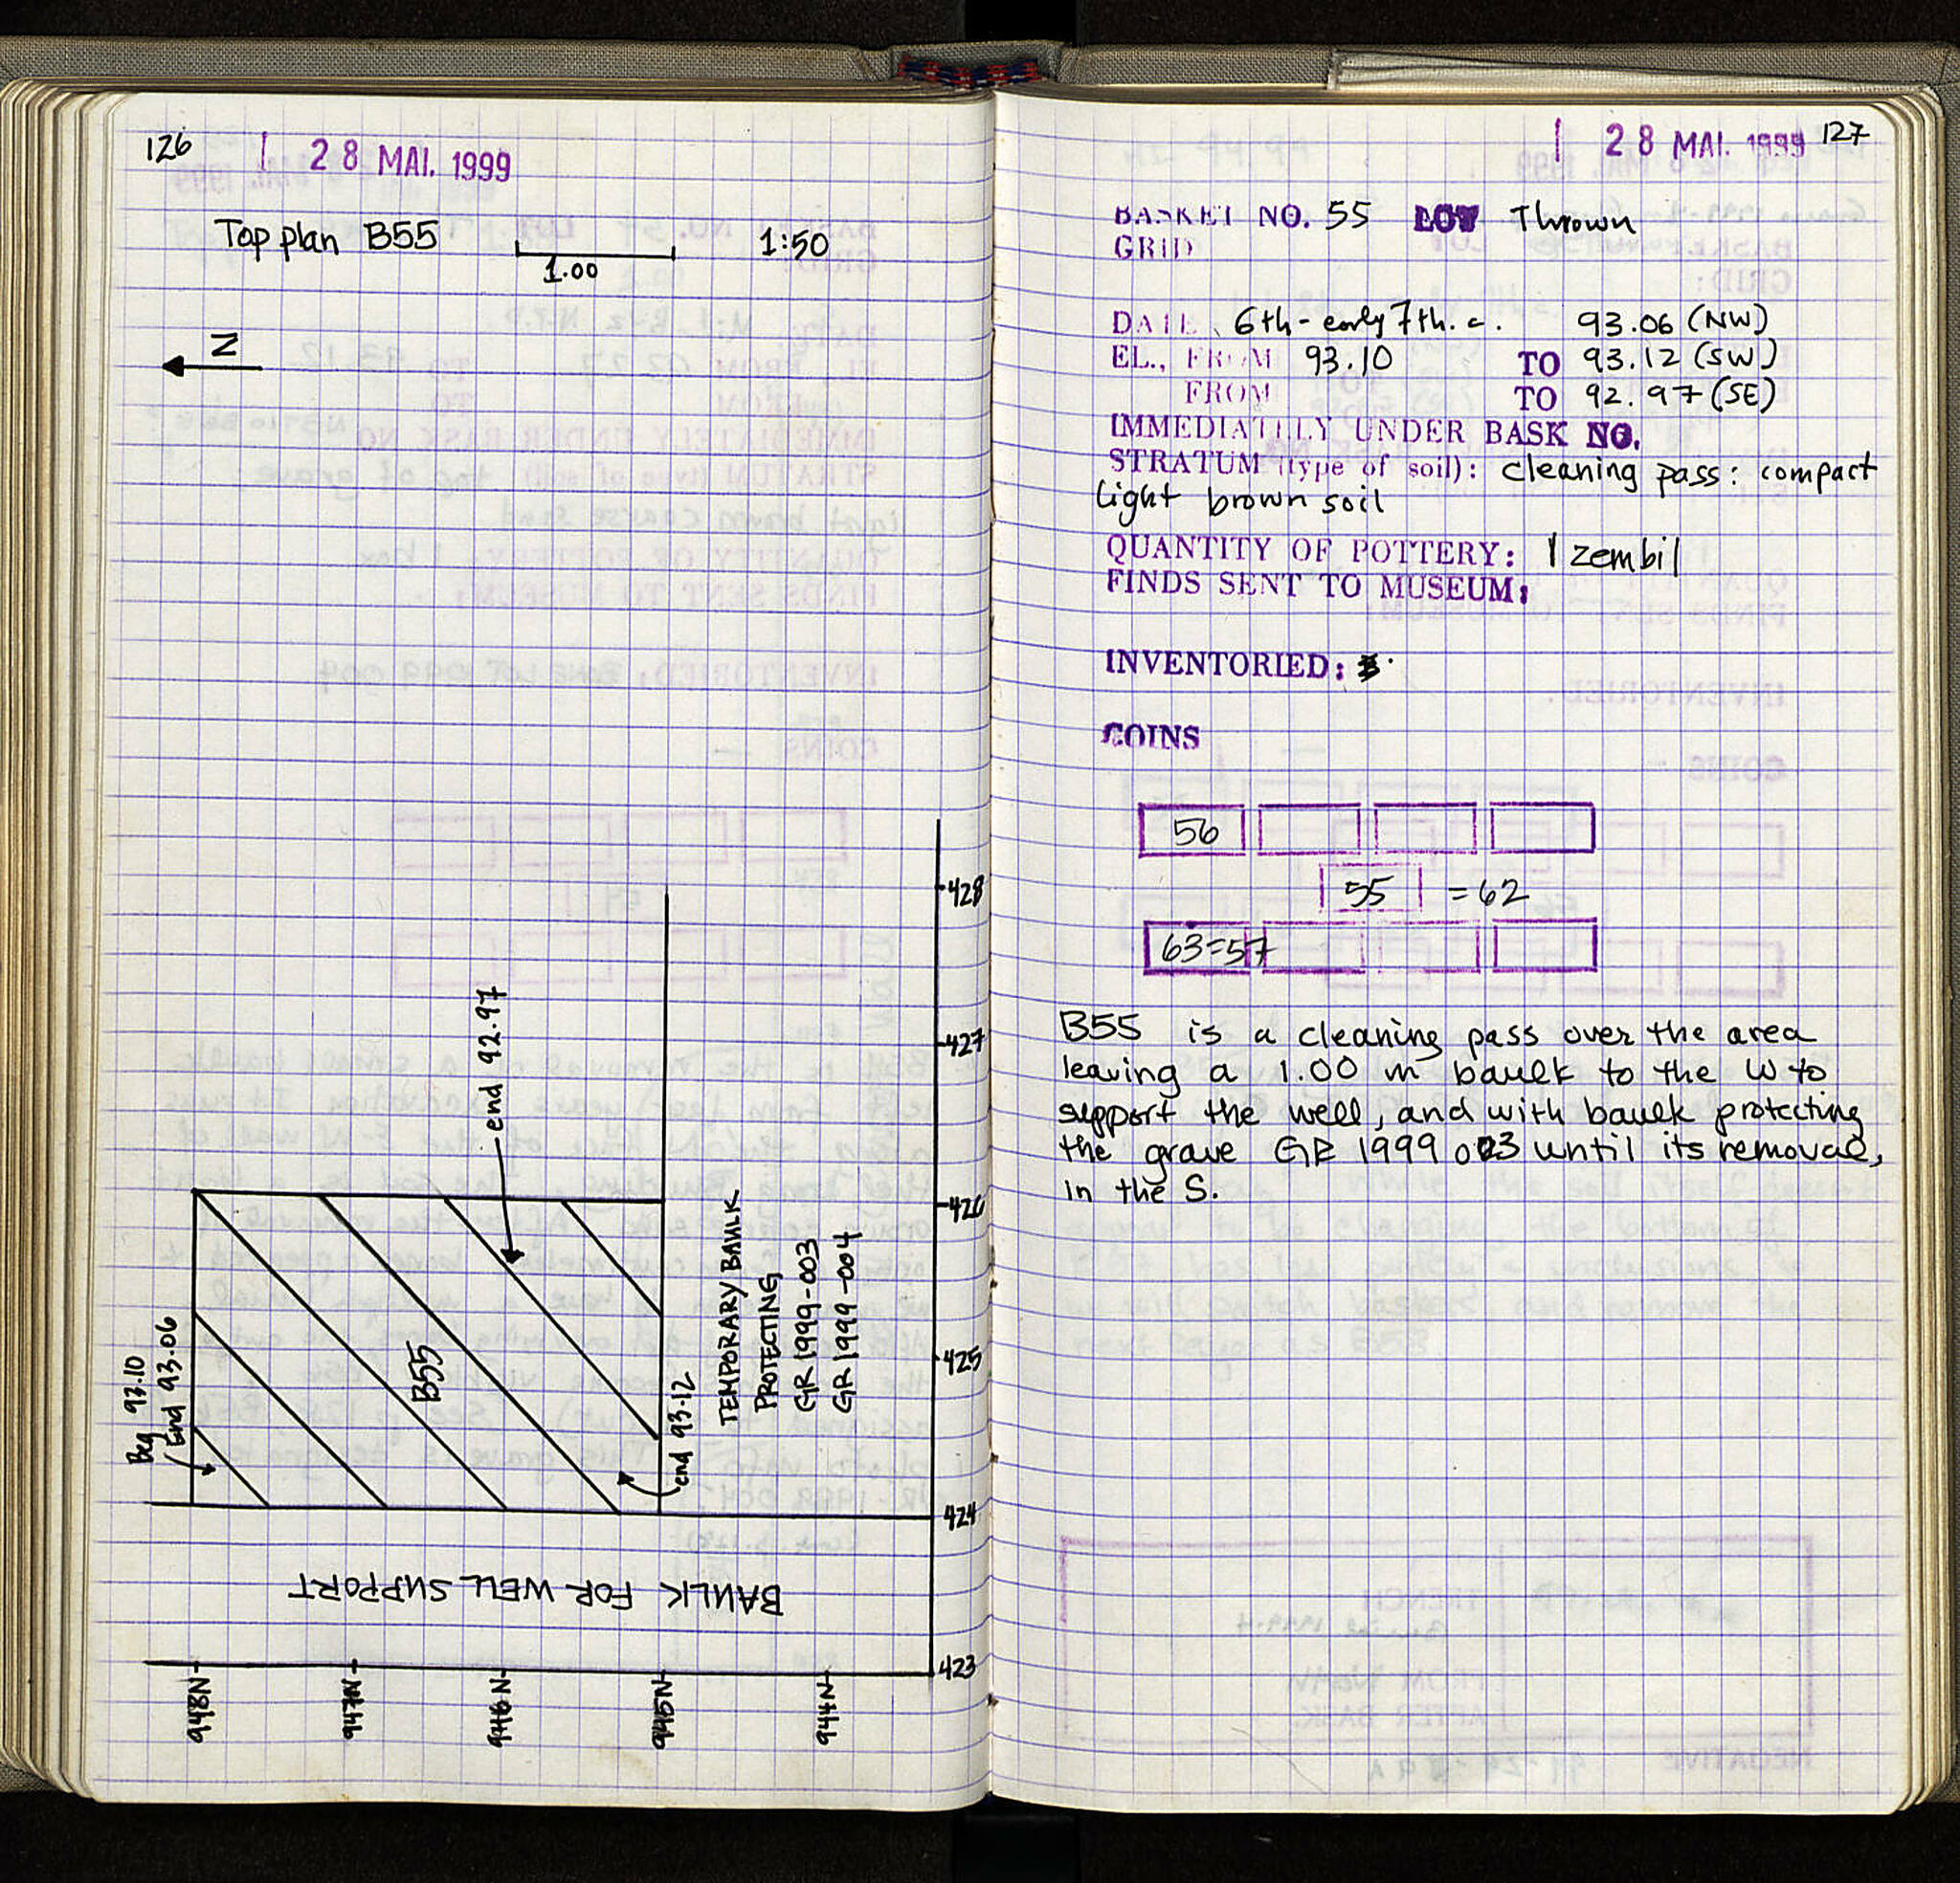 126
28 MAI. 1999
Top plan B55
1.00
1:50
N
428
427
end 92.97
426
TEMPORARY BAULK
PROTECTING
GR 1999-003
GR 1999-004
Beg 93.10
End 93.06
B55
425
end 93.12
424
BAULK FOR WELL SUPPORT
423
948N
947N
946N
945N
944N
28 MAI. 1999 127
BASKET NO. 55 LOT Thrown
GRID
DATE 6th-early 7th. c. 93.06 (NW)
EL., FROM 93.10 TO 93.12 (SW)
FROM TO 92.97 (SE)
IMMEDIATELY UNDER BASK NO.
STRATUM (type of soil): cleaning pass: compact
light brown soil
QUANTITY OF POTTERY: 1 zembil
FINDS SENT TO MUSEUM:
INVENTORIED:
COINS
56
55 = 62
63=57
B55 is a cleaning pass over the area
leaving a 1.00 m baulk to the W to
support the well, and with baulk protecting
the grave GR 1999 003 until its removal,
in the S.